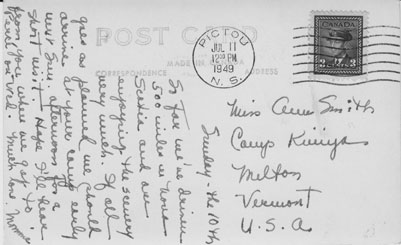 POST CARD
MADE IN CANADA
CORRESPONDENCE
ADDRESS
PICTOU
JUL 11
PM
1949
N.S.
CANADA
3 3
Sunday - the 10th
So far we've driven
500 miles in Nova
Scotia and are
enjoying the scenery
very much. If all
goes as planned we should
arrive at your camp early
next Sun. afternoon for a
short visit. Hope I'll hear
from you when we get to
on Wed. Much love, Mommie
Miss Ann Smith
Camp Kiniya
Milton
Vermont
U.S.A.